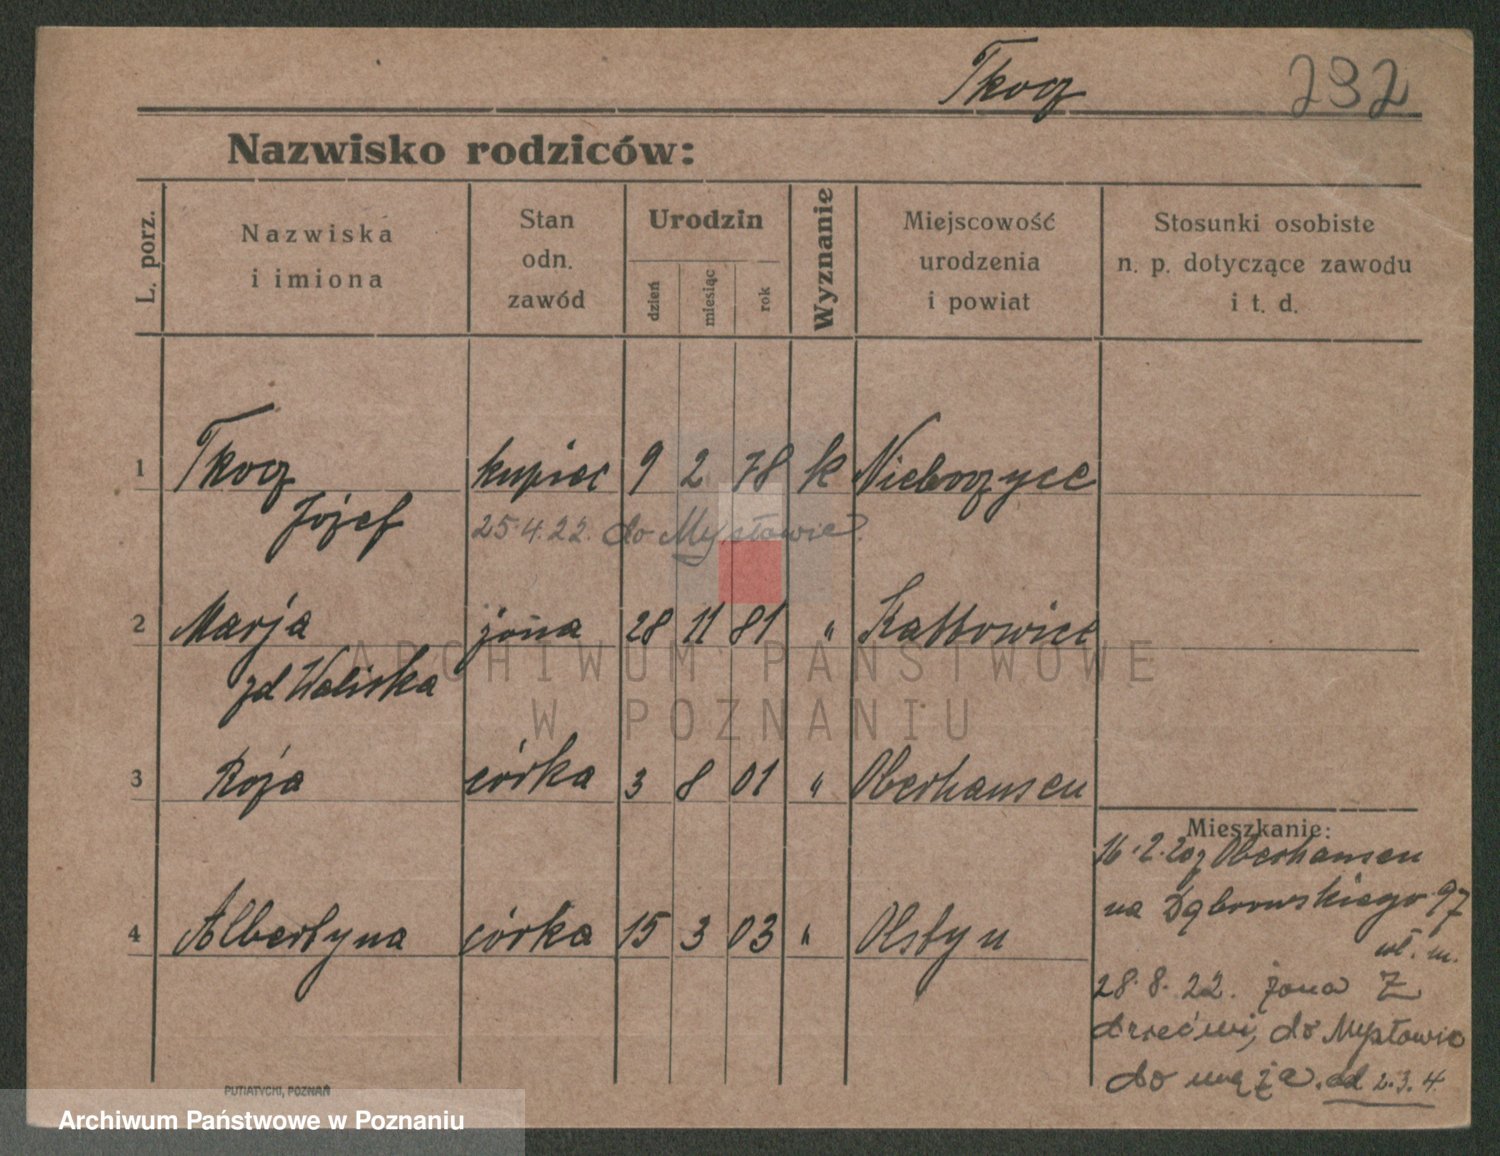 Tkocz 232
Nazwisko rodziców:
L. porz.
Nazwiska
i imiona
Stan
odn.
zawód
Urodzin
dzień
miesiąc
rok
Wyznanie
Miejscowość
urodzenia
i powiat
Stosunki osobiste
n. p. dotyczące zawodu
i t. d.
1 Tkocz kupiec 9 2 78 k Nieboczyce
Józef
25.4.22. do Mysłowic
2 Marja żona 28 11 81 " Kattowice
zd Waliska
3 Róża córka 3 8 01 " Oberhausen
4 Albertyna córka 15 3 03 " Olstyn
Mieszkanie:
16.2.20 z Oberhausen
na Dąbrowskiego 97
wł. m.
28.8.22. żona z
dziećmi, do Mysłowic
do męża. ad 2.3.4
PUTIATYCKI, POZNAŃ
ARCHIWUM PAŃSTWOWE
W POZNANIU
Archiwum Państwowe w Poznaniu